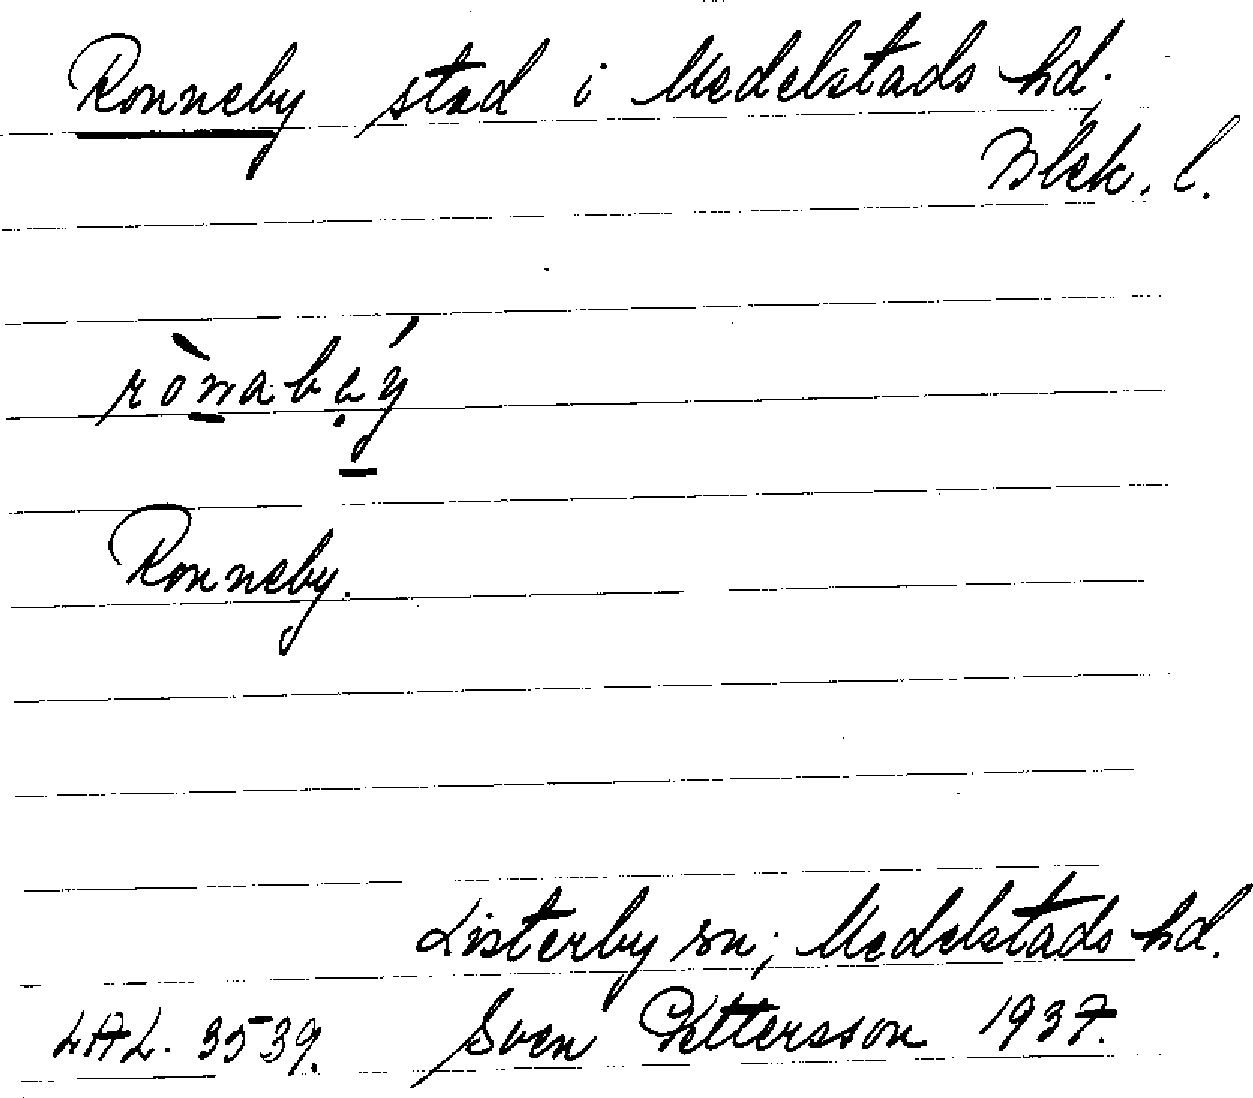 Ronneby stad i Medelstads hd.
Blek. l.
Ronneby.
Listerby sn; Medelstads hd.
LAL. 3539. Sven Pettersson 1937.